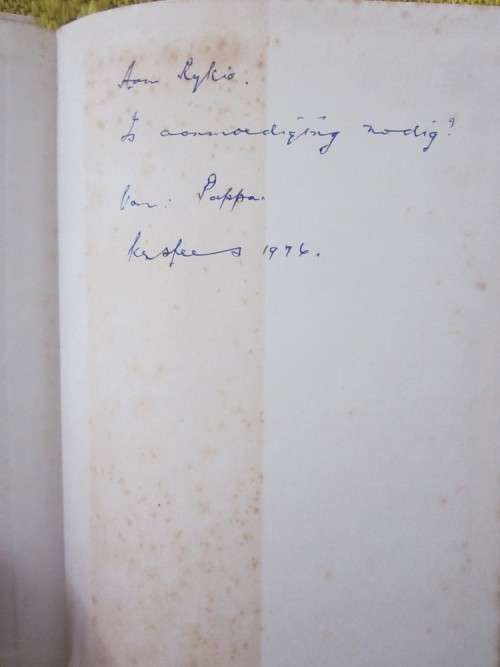 Aan Rykie.
Is aanmoediging nodig?
Van: Pappa.
Kersfees 1976.